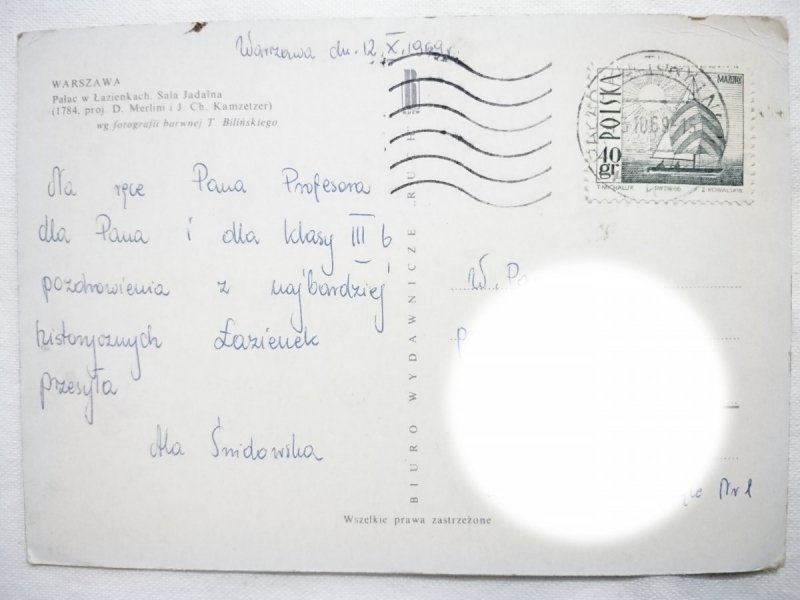 Warszawa dn. 12. X. 1969r.
WARSZAWA
Pałac w Łazienkach. Sala Jadalna
(1784, proj. D. Merlini i J. Ch. Kamzetzer)
wg fotografii barwnej T. Bilińskiego
Na ręce Pana Profesora
dla Pana i dla klasy III b
pozdrowienia z najbardziej
historycznych Łazienek
przesyła
Ala Śnidowska
BIURO WYDAWNICZE RUCH
RUCH
Wszelkie prawa zastrzeżone
MAZURY
POLSKA
40 gr
T. MICHALUK PWZWBOD Z. KOWALSKI
10.69
W. P
Nr 1